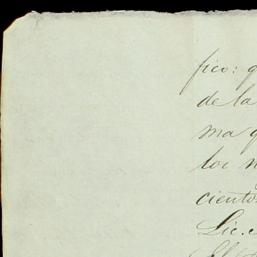 fico: q
de la
ma q
los n
ciento
Lic.